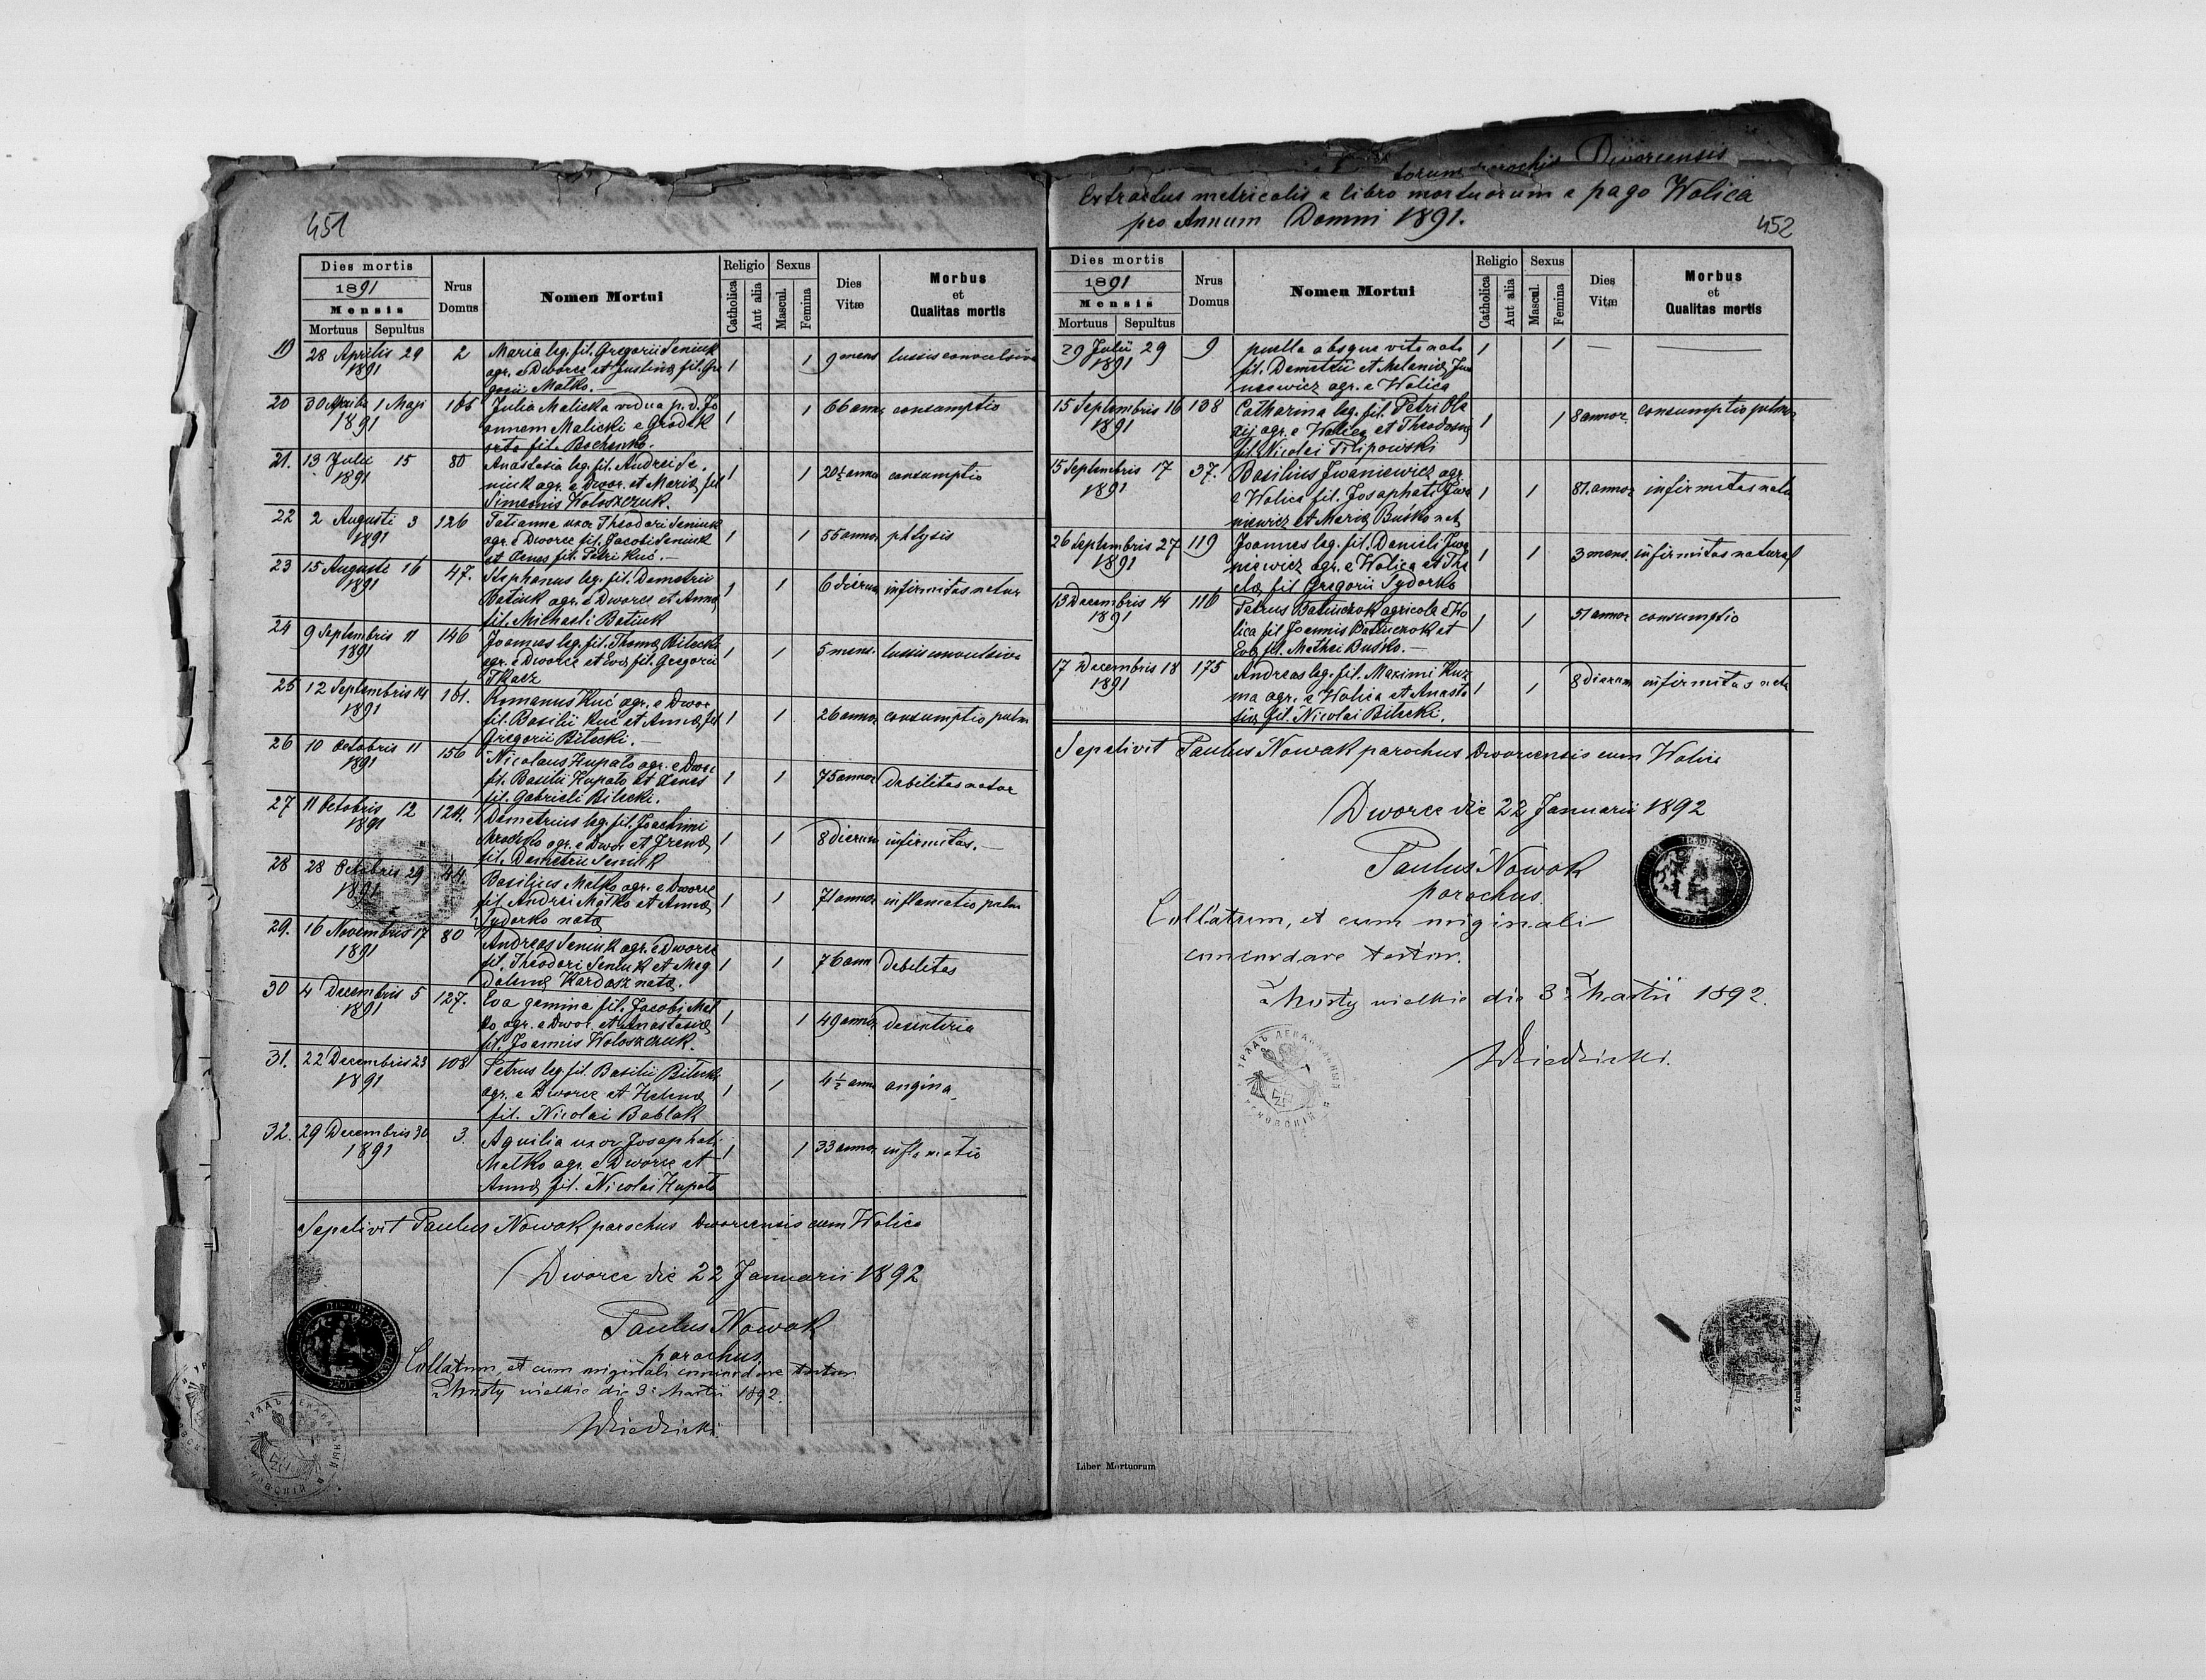 451
Dies mortis
1891
Mensis
Mortuus Sepultus
Nrus Domus
Nomen Mortui
Religio
Catholica Aut alia
Sexus
Mascul. Femina
Dies Vitæ
Morbus et Qualitas mortis
19 28 Aprilis 29 2 Maria leg. fil. Gregorii Seniuk 1 1 9 mens tussis convulsiva
1891 agr. e Dworce et Justinæ fil. Gre
gorii Matko.—
20 30 Aprilis 1 Maji 165 Julia Malicka vidua p. d. Jo 1 1 66 annor consumptio
1891 annem Malicki e Grodek
orta fil. Bochenko.
21. 13 Julii 15 80 Anastasia leg. fil. Andrei Se 1 1 20½ annor consumptio
1891 niuk agr. e Dwor. et Mariæ fil
Simeonis Woloszczuk.
22 2 Augusti 3 126 Tatianna uxor Theodori Seniuk 1 1 55 annor. phtysis
1891 agr. e Dworce fil. Jacobi Seniuk
et Xenes fil. Petri Kuć.—
23 15 Augusti 16 47. Stephanus leg. fil. Demetrii 1 1 6 dierum infirmitas natur
1891 Batiuk agr. e Dworce et Annæ
fil. Michaeli Batiuk
24 9 Septembris 11 146 Joannes leg. fil. Thomæ Bilecki 1 1 5 mens. tussis convulsiva
1891 agr. e Dworce et Evæ fil. Gregorii
Tkacz
25 12 Septembris 14 161. Romanus Kuć agr. e Dwor 1 1 26 annor. consumptio pulm
1891 fil. Basilii Kuć et Annæ fil
Gregorii Bilecki.
26 10 Octobris 11 156 Nicolaus Hupalo agr. e Dwor 1 1 75 annor debilitas natur
1891 fil. Basilii Hupalo et Xenes
fil. Gabrieli Bilecki.
27 11 Octobris 12 124. Demetrius leg. fil. Joachimi 1 1 8 dierum infirmitas.—
1891 agr. e Dwor. et Irenæ
fil. Demetrii Seniuk
28 28 Octobris 29 44. Basilius Matko agr. e Dworce 1 1 71 annor inflamatio pulm
1891 fil. Andrei Matko et Annæ
Sydorko nata
29. 16 Novembris 17 80 Andreas Seniuk agr. e Dworce 1 1 76 ann debilitas
1891 fil. Theodori Seniuk et Mag
dalenæ Kardasz nata.
30 4 Decembris 5 127. Eva gemina fil. Jacobi Mat 1 1 49 annor. desinteria
1891 ko agr. e Dwor. et Anastasiæ
fil. Joannis Woloszczuk.
31. 22 Decembris 23 108 Petrus leg. fil. Basilii Bilecki 1 1 4½ anno angina
1891 agr. e Dworce et Helenæ
fil. Nicolai Bablak
32. 29 Decembris 30 3. Aquilia uxor Josaphati 1 1 33 annor. inflamatio
1891 Matko agr. e Dworce et
Annæ fil. Nicolai Hupalo
Sepelivit Paulus Nowak parochus Dworcensis cum Wolica
Dworce die 22 Januarii 1892
Paulus Nowak
parochus.
Collatum, et cum originali concordare testor
Mosty wielkie die 3 Martii 1892.
452
parochiæ Dworcensis
Extractus metricalis e libro mortuorum e pago Wolica
pro Annum Domini 1891.
Dies mortis
1891
Mensis
Mortuus Sepultus
Nrus Domus
Nomen Mortui
Religio
Catholica Aut alia
Sexus
Mascul. Femina
Dies Vitæ
Morbus et Qualitas mortis
29 Julii 29 9 puella absque vita nata 1 1 — —
1891 fil. Demetrii et Melaniæ Jwa
niewicz agr. e Wolica
15 Septembris 16 138 Catharina leg. fil. Petri Ole 1 1 8 annor. consumptio pulmo
1891 xij agr. e Wolica et Theodosiæ
fil. Nicolai Filipowski
15 Septembris 17 37. Basilius Jwaniewicz agr. 1 1 81. annor infirmitas natu
1891 e Wolica fil. Josaphati Jwa
niewicz et Mariæ Buśko nat
26 Septembris 27 119 Joannes leg. fil. Danieli Jwa 1 1 3 mens. infirmitas natural
1891 niewicz agr. e Wolica et The
clæ fil. Gregorii Sydorko
13 Decembris 14 116 Petrus Batiuczok agricola e Wo 1 1 51 annor consumptio
1891 lica fil. Joannis Batiuczok et
Evæ fil. Mathei Buśko.—
17 Decembris 18 175 Andreas leg. fil. Maximi Kuz 1 1 8 dierum infirmitas natu
1891 ma agr. e Wolica et Anasta
siæ fil. Nicolai Bilecki.
Sepelivit Paulus Nowak parochus Dworcensis cum Wolica
Dworce die 22 Januarii 1892
Paulus Nowak
parochus.
Collatum, et cum originali
concordare testor.
Mosty wielkie die 3 Martii 1892.
Liber Mortuorum